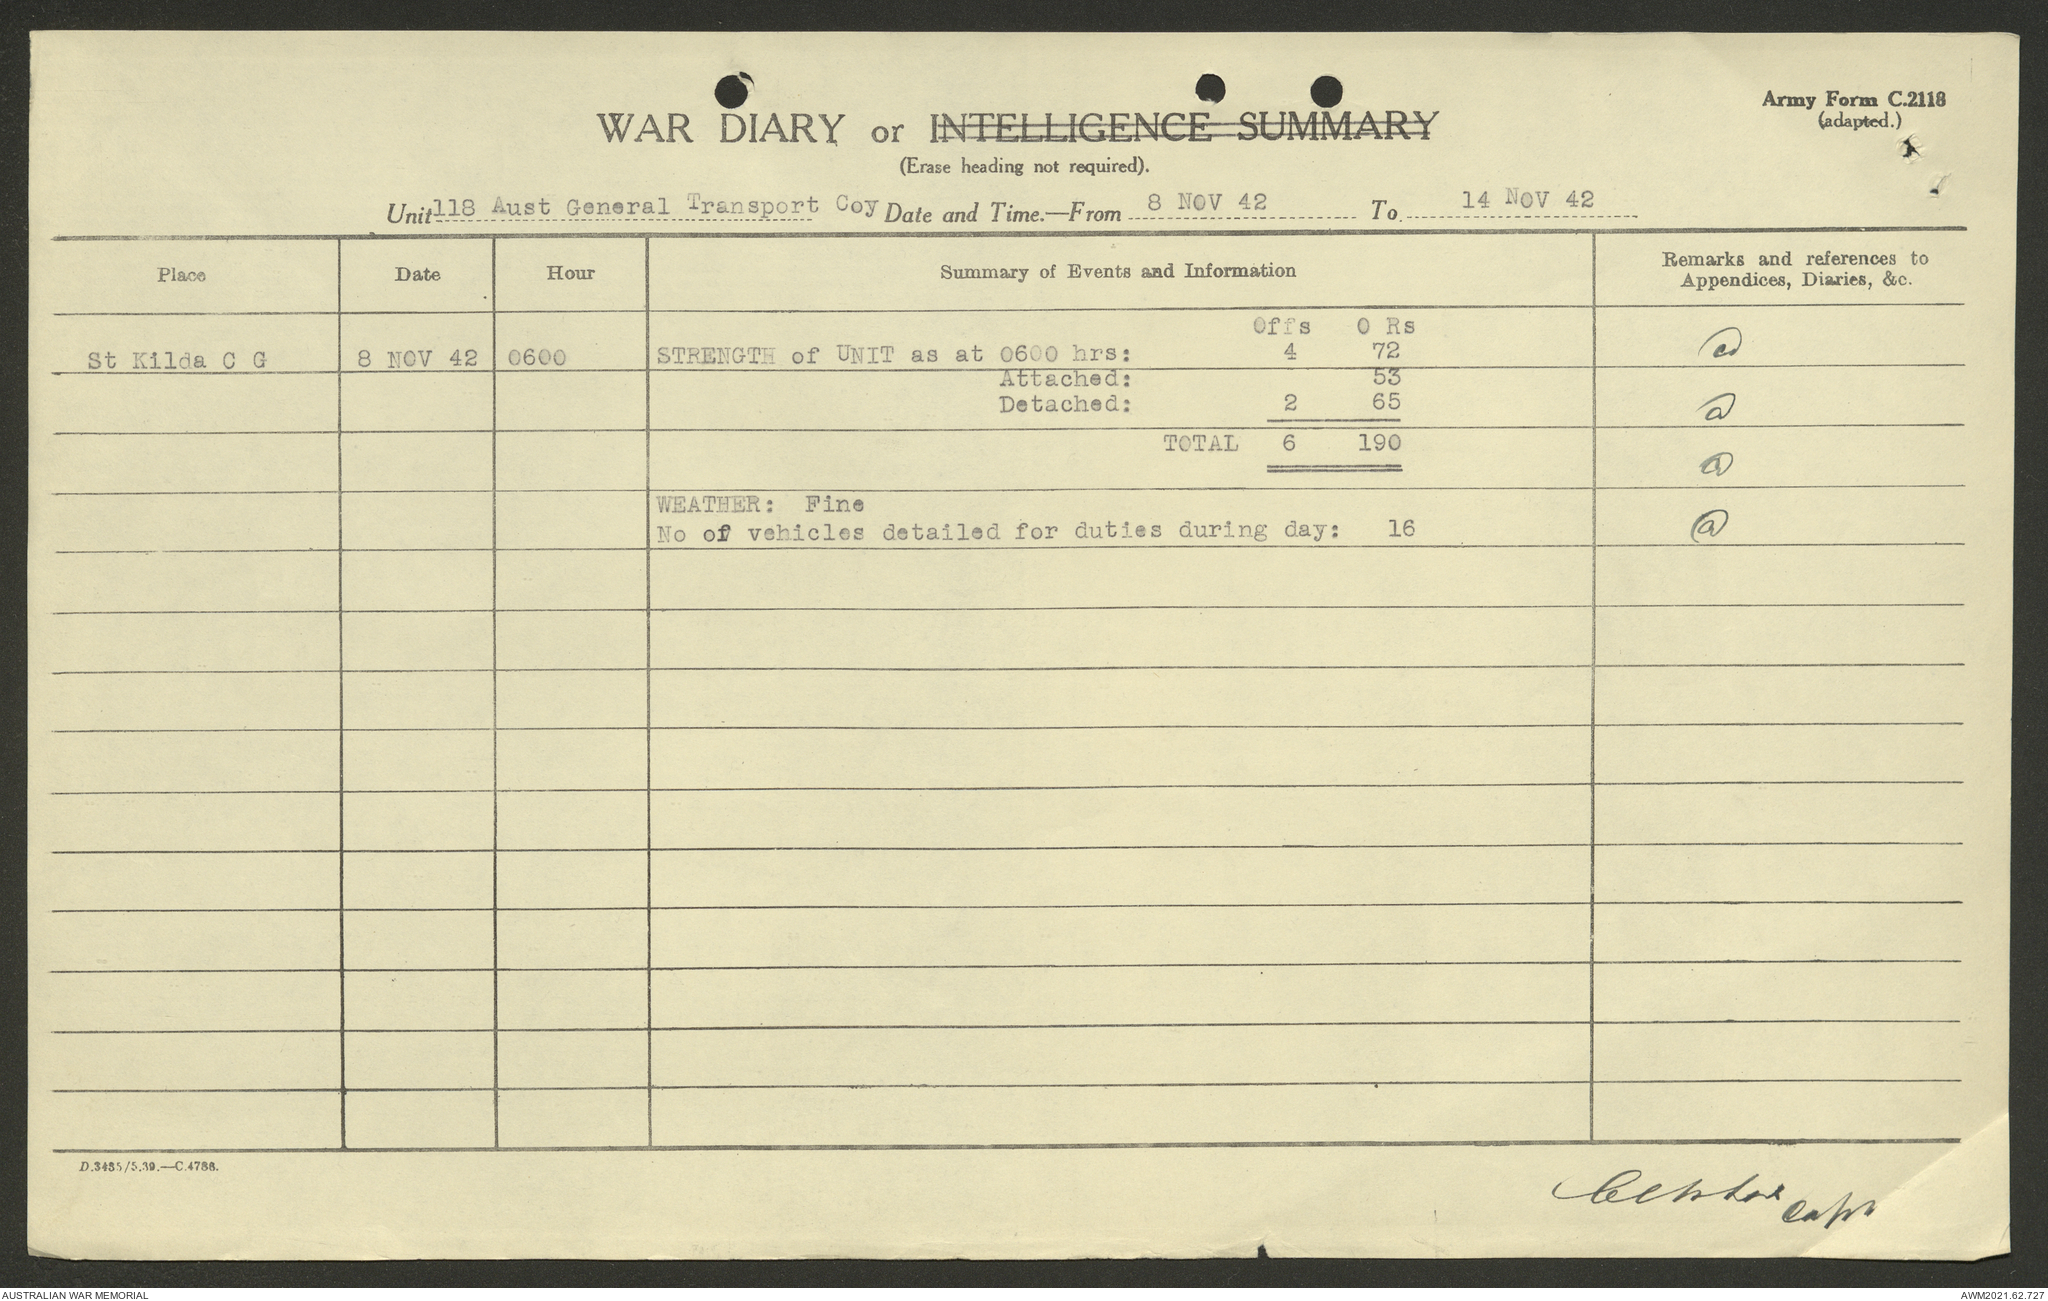 Army Form C.2118
(adapted.)
WAR DIARY or INTELLIGENCE SUMMARY
(Erase heading not required).
Unit 118 Aust General Transport Coy Date and Time.—From 8 NOV 42 To 14 NOV 42
Place Date Hour Summary of Events and Information Remarks and references to
Appendices, Diaries, &c.
Offs O Rs
St Kilda C G 8 NOV 42 0600 STRENGTH of UNIT as at 0600 hrs: 4 72
Attached: 53
Detached: 2 65
TOTAL 6 190
WEATHER: Fine
No of vehicles detailed for duties during day: 16
D.3435/5.39.—C.4738.
Capt
AUSTRALIAN WAR MEMORIAL AWM2021.62.727